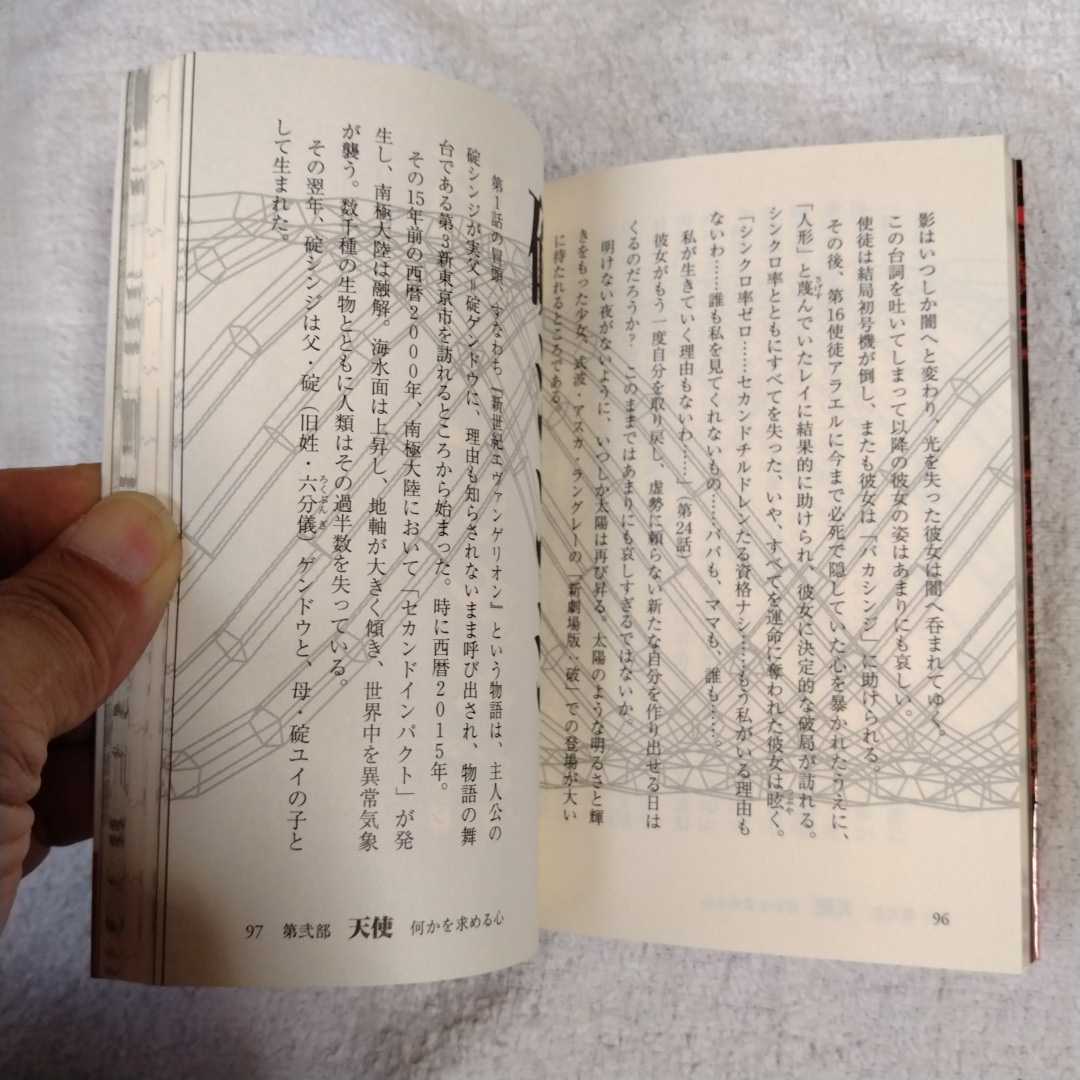 影はいつしか闇へと変わり、光を失った彼女は闇へ呑まれてゆく。
この台詞を吐いてしまって以降の彼女の姿はあまりにも哀しい。
使徒は結局初号機が倒し、またも彼女は「バカシンジ」に助けられる。
その後、第16使徒アラエルに今まで必死で隠していた心を暴かれたうえに、
「人形」と蔑んでいたレイに結果的に助けられ、彼女に決定的な破局が訪れる。
シンクロ率とともにすべてを失った、いや、すべてを運命に奪われた彼女は呟く。
「シンクロ率ゼロ……セカンドチルドレンたる資格ナシ……もう私がいる理由も
ないわ……誰も私を見てくれないもの……パパも、ママも、誰も……。
私が生きていく理由もないわ……」(第24話)
彼女がもう一度自分を取り戻し、虚勢に頼らない新たな自分を作り出せる日は
くるのだろうか? このままではあまりにも哀しすぎるではないか。
明けない夜がないように、いつしか太陽は再び昇る。太陽のような明るさと輝
きをもった少女、式波・アスカ・ラングレーの『新劇場版:破』での登場が大い
に待たれるところである。
96
第1話の冒頭、すなわち『新世紀エヴァンゲリオン』という物語は、主人公の
碇シンジが実父=碇ゲンドウに、理由も知らされないまま呼び出され、物語の舞
台である第3新東京市を訪れるところから始まった。時に西暦2015年。
その15年前の西暦2000年、南極大陸において「セカンドインパクト」が発
生し、南極大陸は融解。海水面は上昇し、地軸が大きく傾き、世界中を異常気象
が襲う。数千種の生物とともに人類はその過半数を失っている。
その翌年、碇シンジは父・碇(旧姓・六分儀)ゲンドウと、母・碇ユイの子と
して生まれた。
97 第弐部 天使 何かを求める心